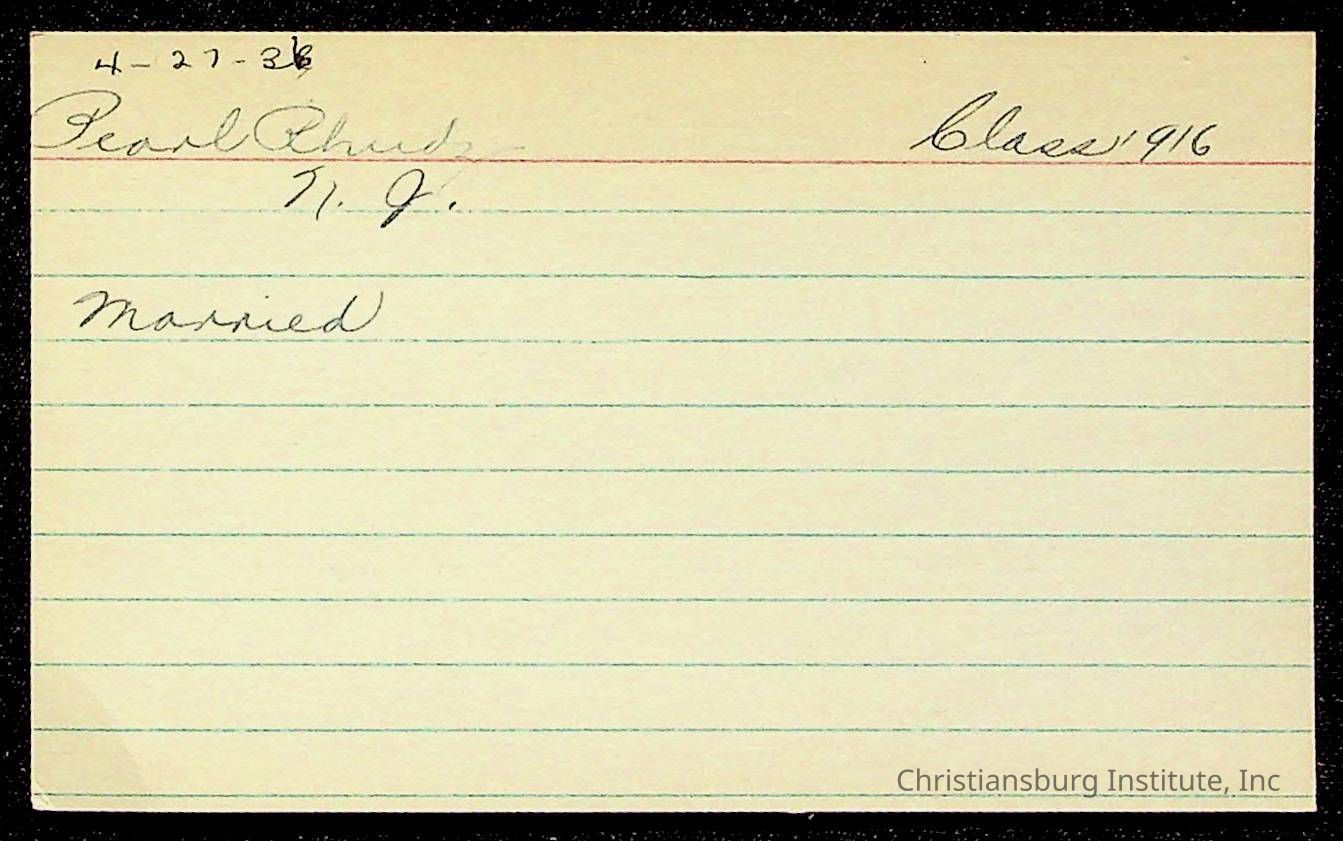 4-27-36
Pearl Rhudy Class 1916
N. J.
Married
Christiansburg Institute, Inc